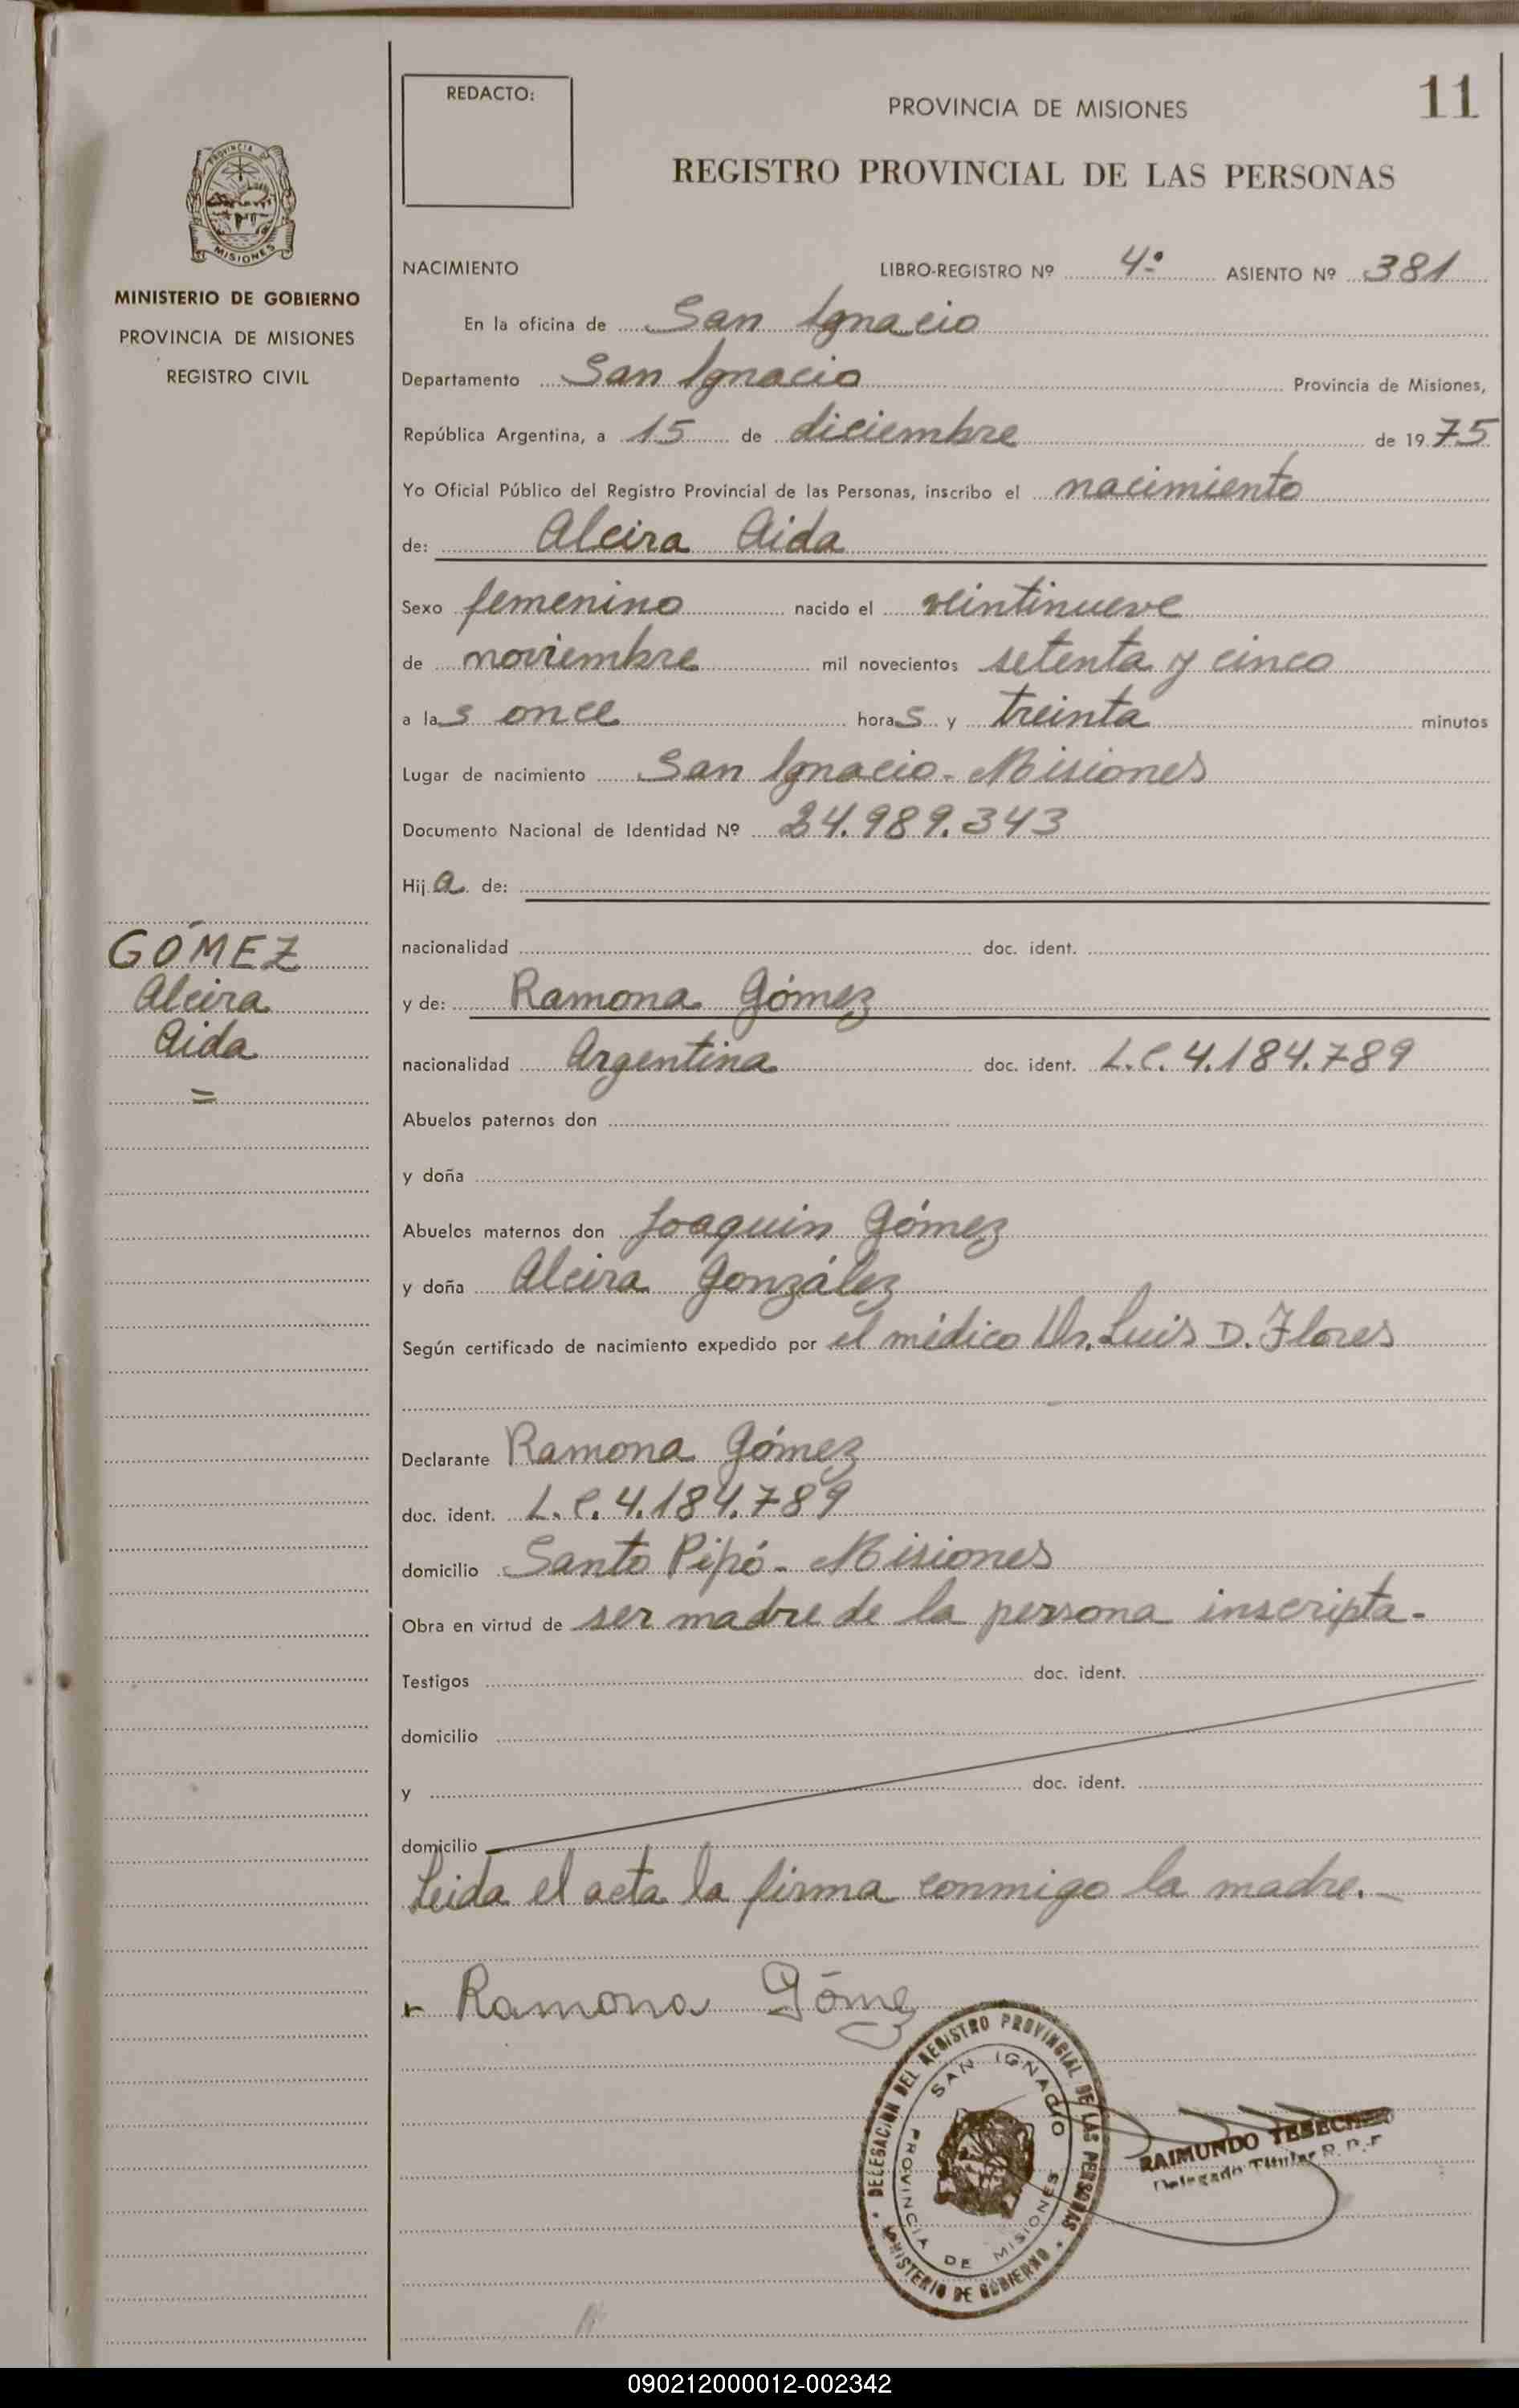 REDACTO:
PROVINCIA DE MISIONES
11
REGISTRO PROVINCIAL DE LAS PERSONAS
PROVINCIA DE
MISIONES
MINISTERIO DE GOBIERNO
PROVINCIA DE MISIONES
REGISTRO CIVIL
NACIMIENTO LIBRO-REGISTRO Nº 4º ASIENTO Nº 381
En la oficina de San Ignacio
Departamento San Ignacio Provincia de Misiones,
República Argentina, a 15 de diciembre de 1975
Yo Oficial Público del Registro Provincial de las Personas, inscribo el nacimiento
de: Alcira Aida
Sexo femenino nacido el veintinueve
de noviembre mil novecientos setenta y cinco
a las once horas y treinta minutos
Lugar de nacimiento San Ignacio - Misiones
Documento Nacional de Identidad Nº 24.989.343
Hija de:
GÓMEZ
Alcira
Aida
=
nacionalidad doc. ident.
y de: Ramona Gómez
nacionalidad Argentina doc. ident. L.C. 4.184.789
Abuelos paternos don
y doña
Abuelos maternos don Joaquin Gómez
y doña Alcira González
Según certificado de nacimiento expedido por el médico Dr. Luis D. Flores
Declarante Ramona Gómez
doc. ident. L.C. 4.184.789
domicilio Santo Pipó - Misiones
Obra en virtud de ser madre de la persona inscripta -
Testigos doc. ident.
domicilio
y doc. ident.
domicilio
Leida el acta la firma conmigo la madre. -
Ramona Gómez
DELEGACIÓN DEL REGISTRO PROVINCIAL DE LAS PERSONAS
MINISTERIO DE GOBIERNO
SAN IGNACIO
PROVINCIA DE MISIONES
RAIMUNDO
Delegado Titular R. P. P.
090212000012-002342